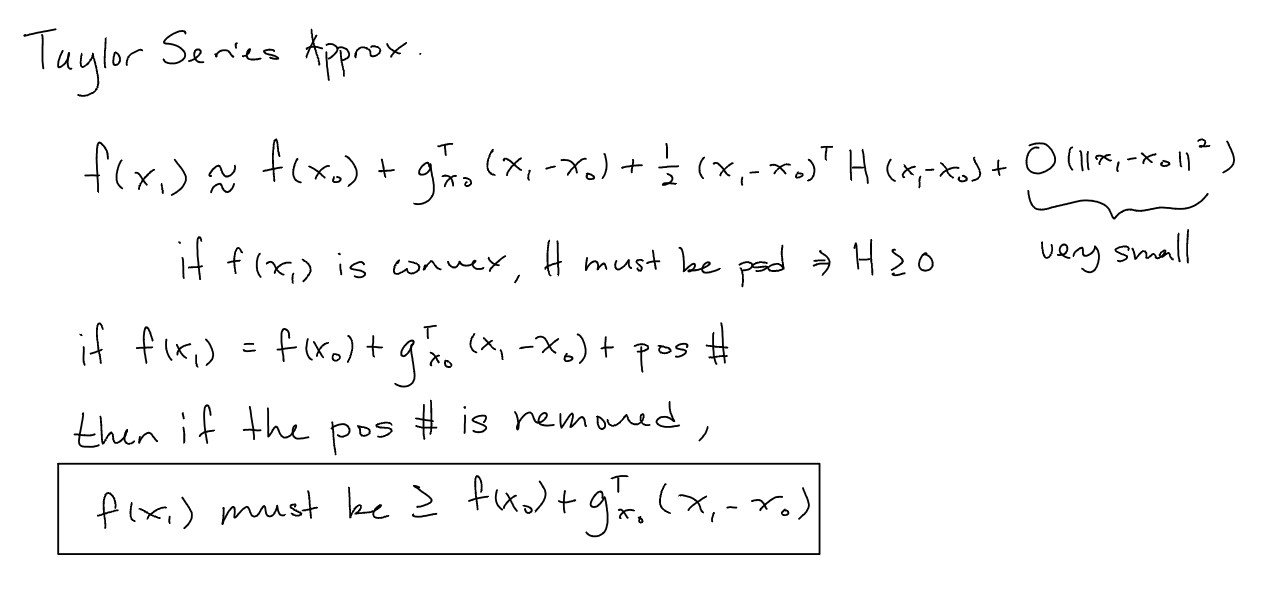 Taylor Series Approx.
f(x₁) ≈ f(x₀) + gᵀₓ₀ (x₁ - x₀) + ½ (x₁ - x₀)ᵀ H (x₁ - x₀) + O(||x₁ - x₀||²)
very small
if f(x₁) is convex, H must be psd ⇒ H ≥ 0
if f(x₁) = f(x₀) + gᵀₓ₀ (x₁ - x₀) + pos #
then if the pos # is removed,
f(x₁) must be ≥ f(x₀) + gᵀₓ₀ (x₁ - x₀)